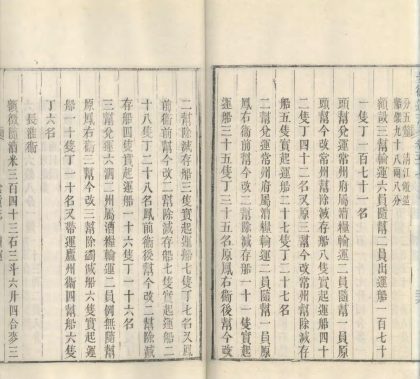 船銀九十八兩八分
額設三幫輸運六員隨幫二員出運船一百七十
一隻丁一百七十一名
頭幫兌運常州府屬漕糧輸運二員隨幫一員原
頭幫今改常州幫除減存船八隻實起運船四十
二隻丁四十二名又原三幫今改常州幫除減存
船五隻實起運船二十七隻丁二十七名
二幫兌運常州府屬漕糧輸運二員隨幫一員原
鳳右衛前幫今改二幫除減存船七隻實起運
運船三十五隻丁三十五名原鳳右衛後幫今改
二幫除減存船三隻實起運船七隻丁七名又鳳
前衛前幫今改二幫除減存船七隻實起運船二
十八隻丁二十八名鳳前衛後幫今改二幫除減
存船四隻實起運船一十六隻丁一十六名
三幫兌運六滿二州屬漕糧輸運二員例無隨幫
原鳳右衛二幫今改三幫除減船六隻實起運
船一十隻丁一十名又帶運廬州衛四幫船六隻
丁六名
長淮衛
額徵隨漕米三百四十三石三斗六升四合麥三